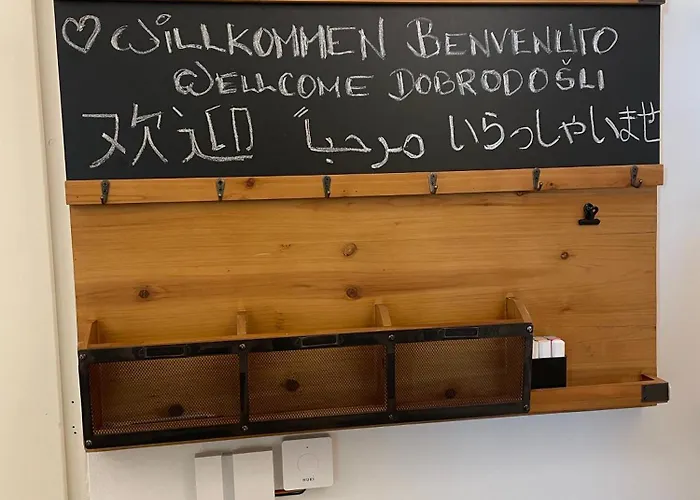 ♡ WILLKOMMEN BENVENUTO
WELLCOME DOBRODOŠLI
欢迎 مرحباً いらっしゃいませ
NUKI